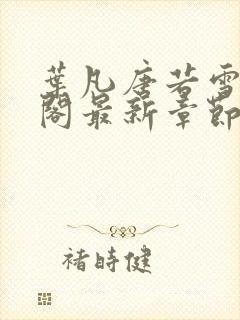 葉凡唐若雪
閣最新章節
褚時健